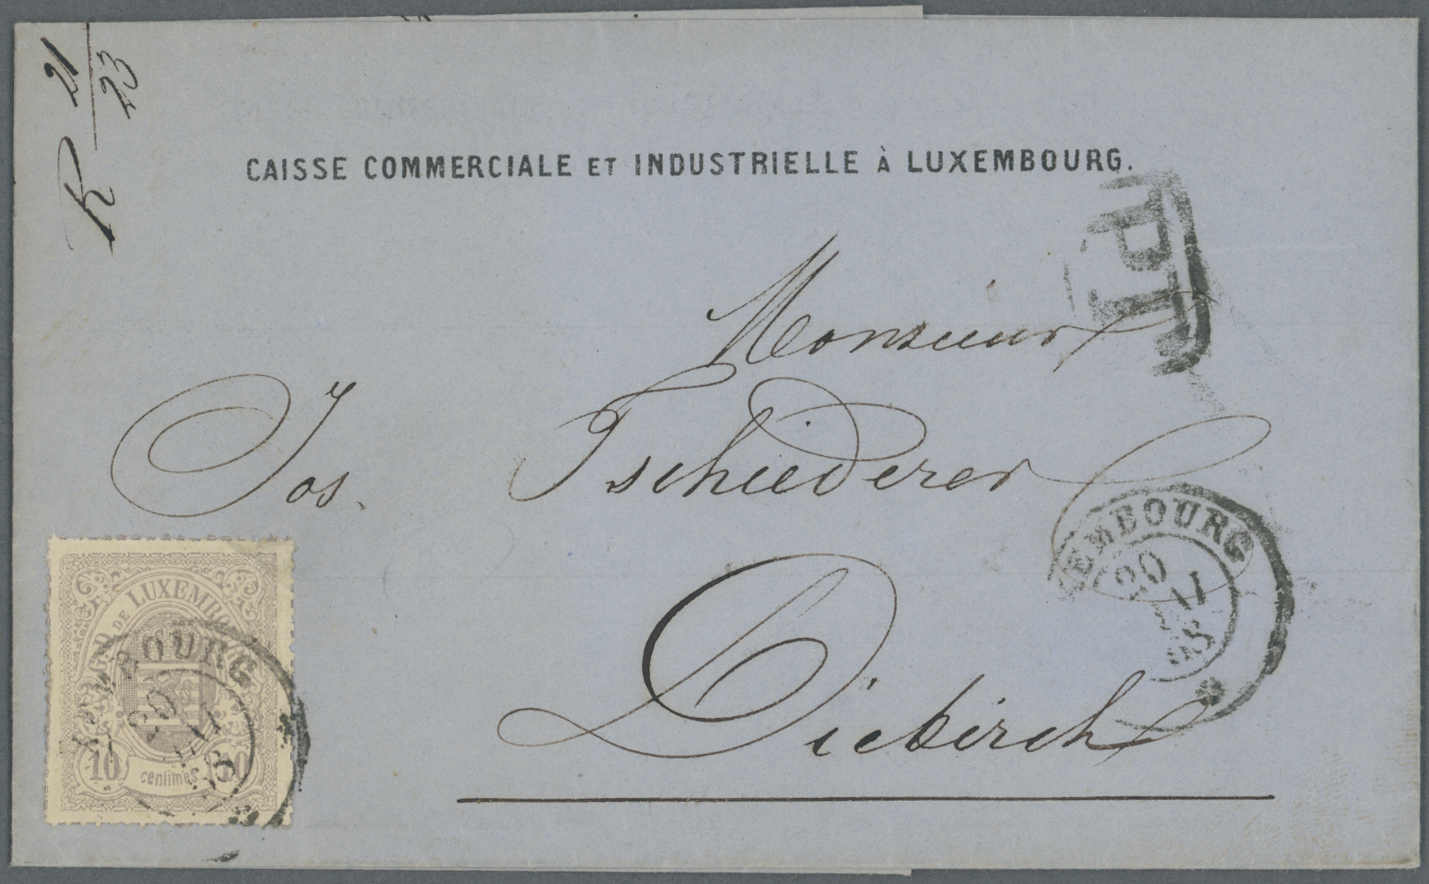 R 21/23
CAISSE COMMERCIALE ET INDUSTRIELLE À LUXEMBOURG.
PD
Monsieur
Jos. Tschiederer
Diekirch
EMBOURG
20
11
68
G.D. DE LUXEMBO
10 centimes 10
MBOURG
20
11
68